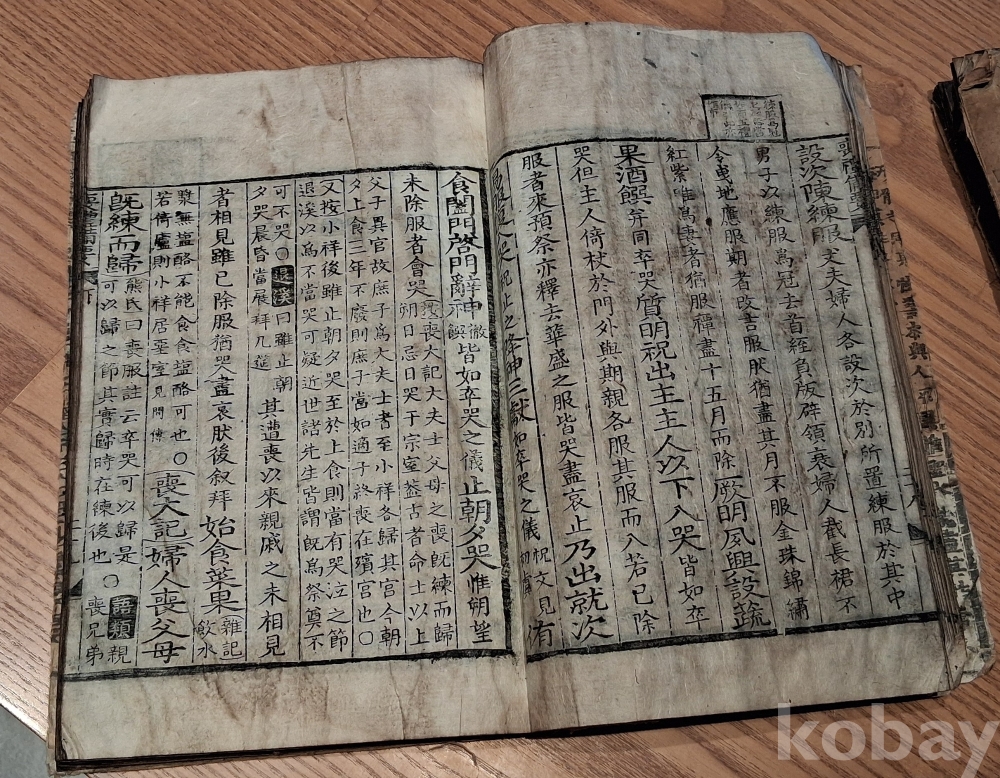 設次陳練服丈夫婦人各設次於別所置練服於其中
男子以練服爲冠去首絰負版辟領衰婦人截長裙不
令曳地應服期者改吉服然猶盡其月不服金珠錦繡
紅紫唯爲妻者猶服禫盡十五月而除厥明夙興設蔬
果酒饌幷同卒哭質明祝出主主人以下入哭皆如卒
哭但主人倚杖於門外與期親各服其服而入若已除
服者來預祭亦釋去華盛之服皆哭盡哀止乃出就次
易服復入哭祝止之降神三獻如卒哭之儀祝文見初虞侑
食闔門啓門辭神徹餕皆如卒哭之儀止朝夕哭惟朔望
未除服者會哭喪大記大夫士父母之喪旣練而歸
朔日忌日哭于宗室蓋古者命士以上
父子異宮故庶子爲大夫士者至小祥各歸其宮今朝
夕上食三年不廢則庶子當如適子終喪在殯宮也○
又按小祥後雖止朝夕哭至於上食則當有哭泣之節
退溪以爲不當哭可疑近世諸先生皆謂旣爲祭奠不
可不哭○退溪曰雖止朝
夕哭晨昏當展拜几筵
其遭喪以來親戚之未相見
者相見雖已除服猶哭盡哀然後叙拜始食菜果雜記
飮水
漿無鹽酪不能食食鹽酪可也○
若倚廬則小祥居堊室見間傳
喪大記婦人喪父母
旣練而歸熊氏曰喪服註云卒哭可以歸是
可以歸之節其實歸時在練後也○語類親
喪兄弟
kobay